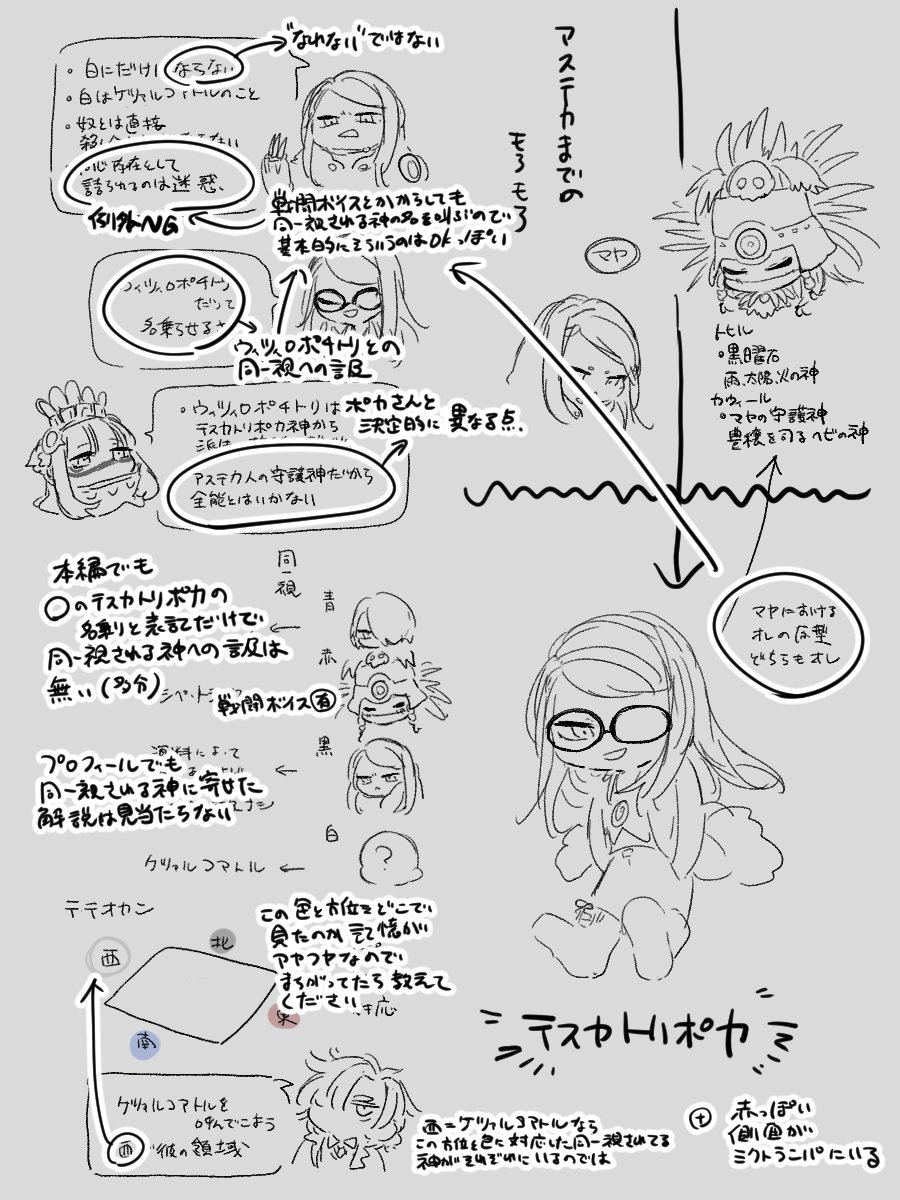 "なれない"ではない
・白にだけならない
・白はケツァルコアトルのこと
・奴とは直接
存在として
語られるのは迷惑、
例外NG
戦闘ボイスとかからしても
同一視される神の名を叫ぶので
基本的にそういうのはOKっぽい
ウィツィロポチトリ
だって
名乗らせる
ウィツィロポチトリとの
同一視への言及
・ウィツィロポチトリは
テスカトリポカ神から
アステカ人の守護神だから
全能とはいかない
ポカさんと
決定的に異なる点、
アステカまでの
もろもろ
マヤ
トヒル
・黒曜石
雨、太陽、火の神
カウィール
・マヤの守護神
豊穣を司るヘビの神
マヤにおける
オレの原型
どちらもオレ
本編でも
○のテスカトリポカの
名乗りと表記だけで
同一視される神への言及は
無い(多分)
戦闘ボイス有
プロフィールでも
同一視される神に寄せた
解説は見当たらない
同一視
青
赤
黒
白
?
ケツァルコアトル
テテオカン
西
北
南
東
対応
この色と方位をどこで
見たのか記憶が
アヤフヤなので
まちがってたら教えて
ください
ケツァルコアトルを
呼んでこよう
西
彼の領域
西=ケツァルコアトルなら
この方位と色に対応した同一視されてる
神がそれぞれにいるのでは
テスカトリポカ
赤っぽい
側面が
ミクトランパにいる